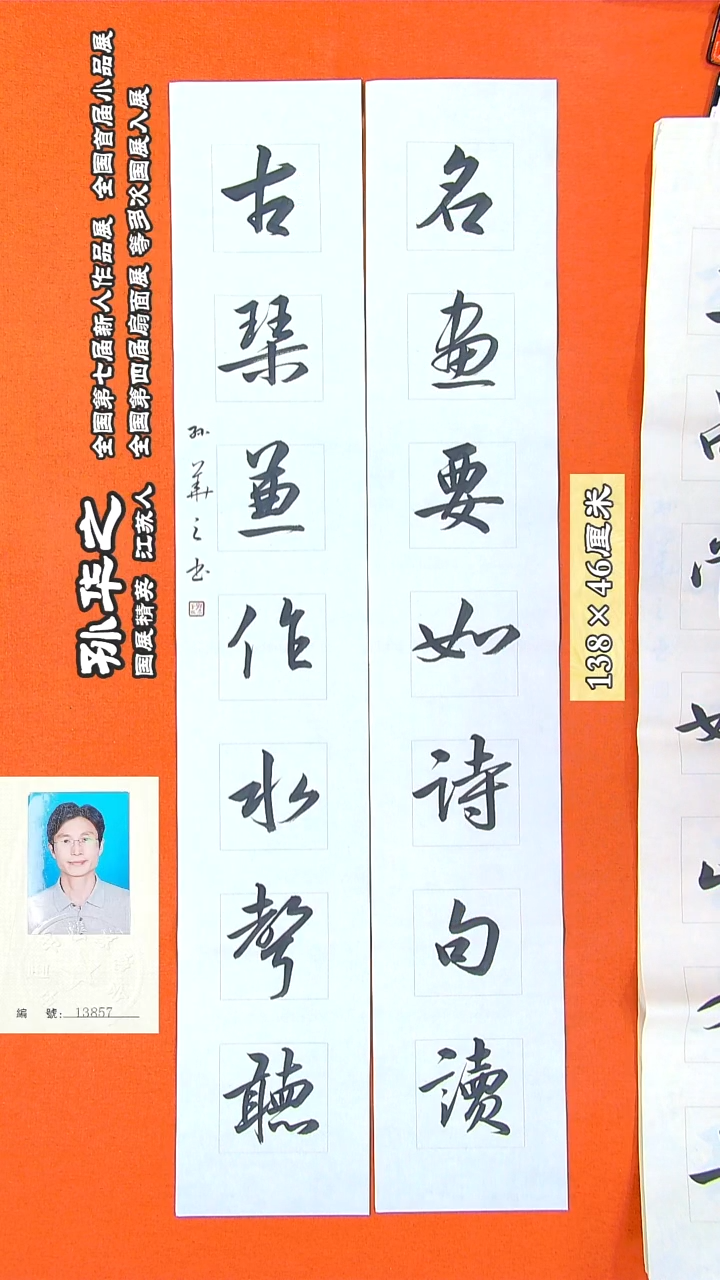 名畫要如詩句讀
古琴兼作水聲聽
孙華之书
孙华之
国展精英 江苏人
全国第七届新人作品展 全国首届小品展
全国第四届扇面展 等多次国展入展
138×46厘米
編 號: 13857